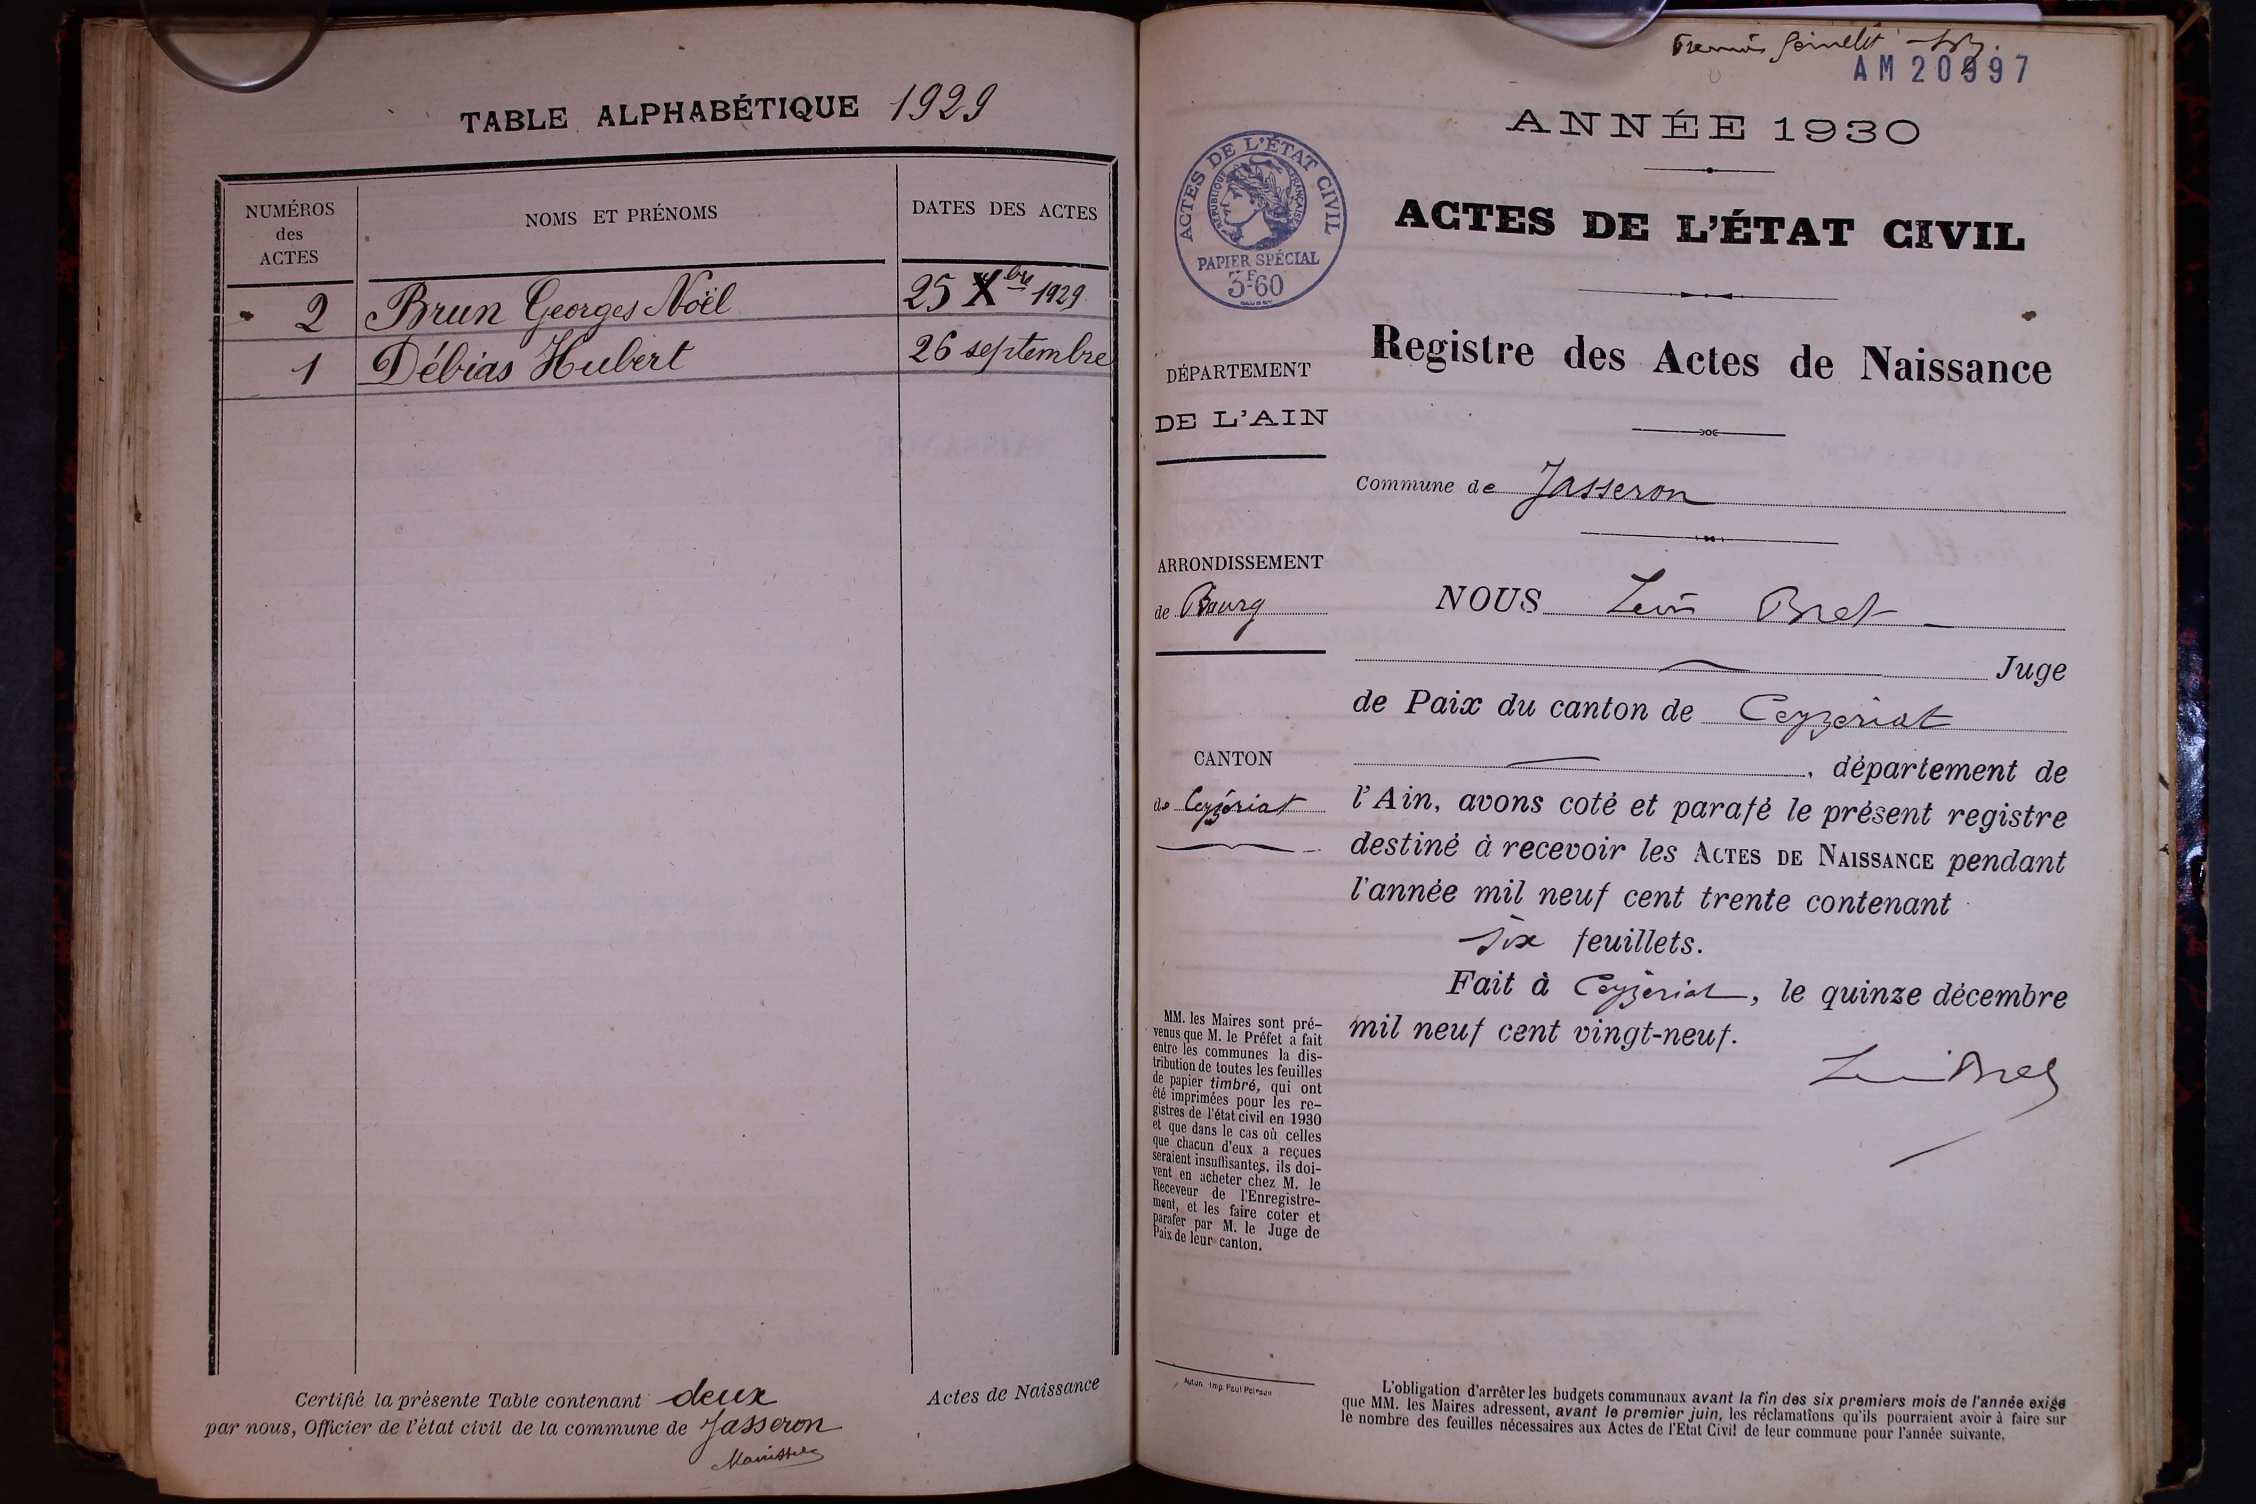 TABLE ALPHABÉTIQUE 1929
NUMÉROS
des
ACTES
NOMS ET PRÉNOMS
DATES DES ACTES
2 Brun Georges Noël 25 Xbre 1929
1 Débias Hubert 26 septembre
Certifié la présente Table contenant deux
par nous, Officier de l'état civil de la commune de Jasseron
Actes de Naissance
AM 20997
ANNÉE 1930
ACTES DE L'ÉTAT CIVIL
RÉPUBLIQUE FRANÇAISE
PAPIER SPÉCIAL
3F60
ACTES DE L'ÉTAT CIVIL
Registre des Actes de Naissance
DÉPARTEMENT
DE L'AIN
Commune de Jasseron
ARRONDISSEMENT
de Bourg
NOUS Léon Bret
Juge
de Paix du canton de Ceyzériat
CANTON
de Ceyzériat
, département de
l'Ain, avons coté et parafé le présent registre
destiné à recevoir les ACTES DE NAISSANCE pendant
l'année mil neuf cent trente contenant
six feuillets.
Fait à Ceyzériat, le quinze décembre
mil neuf cent vingt-neuf.
Léon Bret
MM. les Maires sont pré-
venus que M. le Préfet a fait
entre les communes la dis-
tribution de toutes les feuilles
de papier timbré, qui ont
été imprimées pour les re-
gistres de l'état civil en 1930
et que dans le cas où celles
que chacun d'eux a reçues
seraient insuffisantes, ils doi-
vent en acheter chez M. le
Receveur de l'Enregistre-
ment, et les faire coter et
parafer par M. le Juge de
Paix de leur canton.
Autun. Imp. Paul
L'obligation d'arrêter les budgets communaux avant la fin des six premiers mois de l'année exige
que MM. les Maires adressent, avant le premier juin, les réclamations qu'ils pourraient avoir à faire sur
le nombre des feuilles nécessaires aux Actes de l'Etat Civil de leur commune pour l'année suivante.